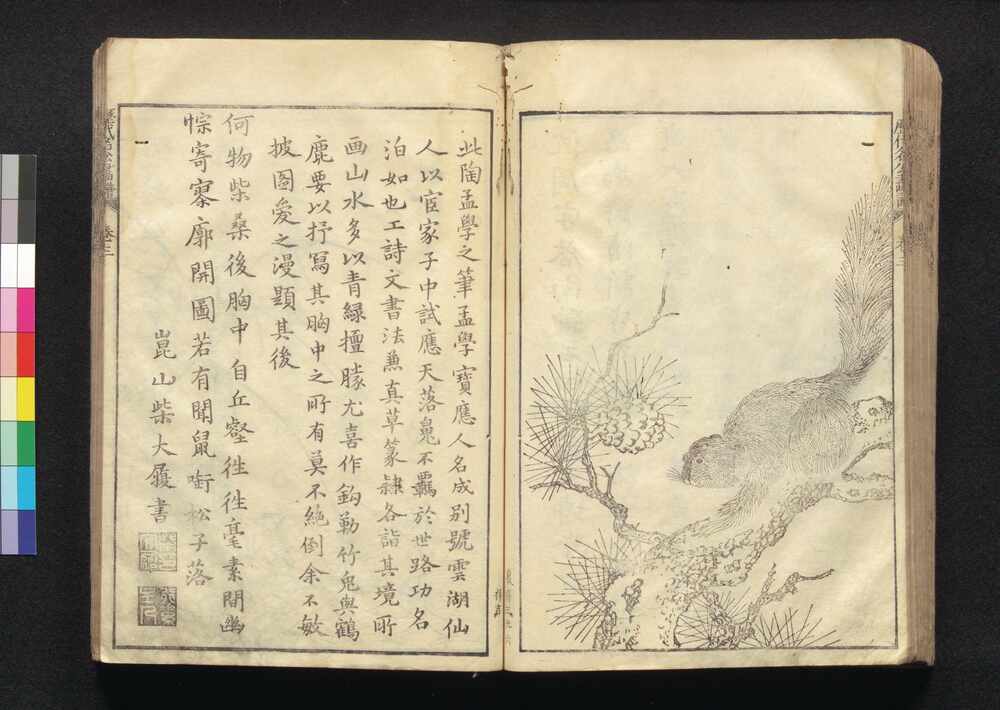 此陶孟學之筆孟學寶應人名成別號雲湖仙
人以宦家子中試應天落魄不羈於世路功名
泊如也工詩文書法兼真草篆隸各詣其境所
画山水多以青緑擅勝尤喜作鈎勒竹兔與鶴
鹿要以抒寫其胸中之所有莫不絶倒余不敏
披圖愛之漫題其後
何物柴桑後胸中自丘壑徃徃毫素間幽
悰寄寥廓開圖若有聞鼠啣松子落
崑山柴大履書
卷三